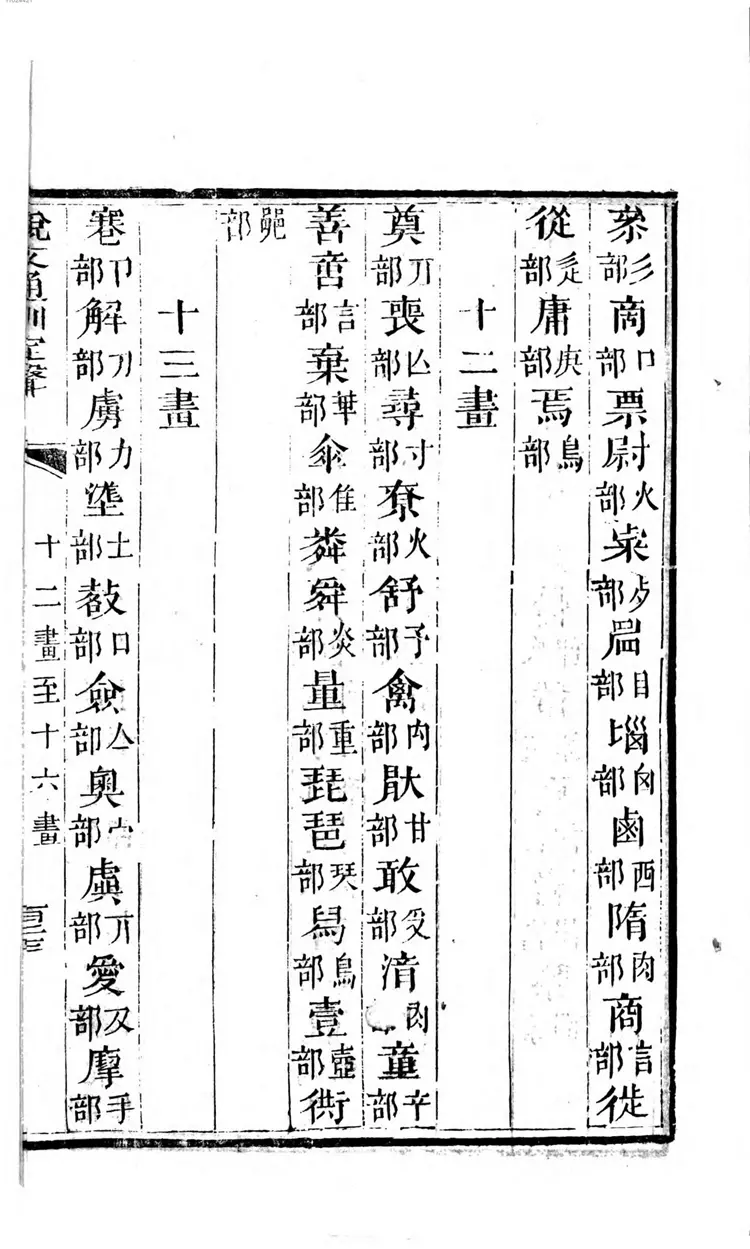 叅彡部 啇口部 票尉火部 桌歺部 眉目部 𡿺囟部 鹵西部 隋肉部 商言部 徙
從辵部 庸庚部 焉鳥部
十二畫
奠丌部 喪亾部 尋寸部 尞火部 舒予部 禽禸部 肰甘部 敢𠬪部 淯肉部 童䇂部
善咅言部 棄𠦒部 傘隹部 粦舜炎部 量重部 琵琶珡部 舄鳥部 壹壺部 衖
𨛜部
十三畫
卷卩部 解刀部 虜力部 塋土部 嗀口部 僉亼部 奧宀部 虞丌部 愛夊部 摩手部
說文通訓定聲
十二畫至十六畫